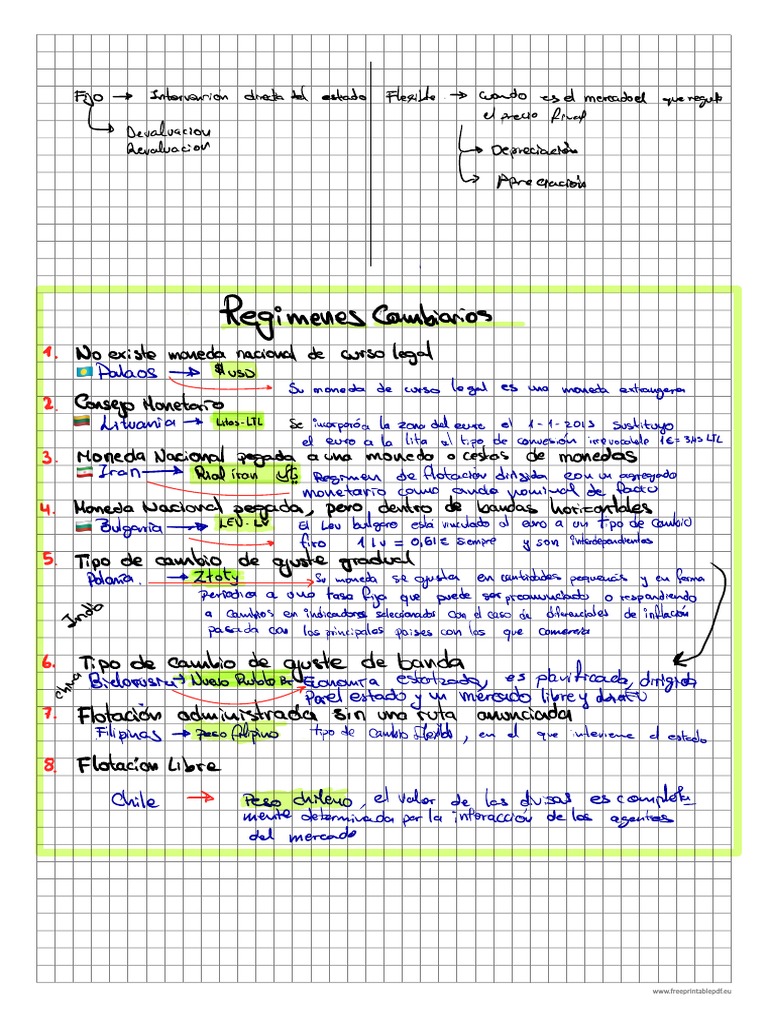 Fijo → Intervención directa del estado
Devaluacion
Revaluacion
Flexible → cuando es el mercado el que regula
el precio final
Depreciación
Apreciación
Regimenes Cambiarios
1. No existe moneda nacional de curso legal
Palaos → $ USD
Su moneda de curso legal es una moneda extranjera
2. Consejo Monetario
Lituania → Litas-LTL Se incorporóa la zona del euro el 1-1-2015 sustituyo
el euro a la lita al tipo de convesión irrevocable 1€= 3,45 LTL
3. Moneda Nacional pegada a una moneda o cestas de monedas
Iran → Rial iran Regimen de flotación dirigida con un agregado
monetario como ancla nominal de facto
4. Moneda Nacional pegada, pero dentro de bandas horizontales
Bulgaria → LEV-LV El Lev bulgaro está vinculado al euro a un tipo de cambio
fijo 1 lv = 0,61€ sempre y son interdependientes
5. Tipo de cambio de ajuste gradual
Polonia → Zloty Su moneda se ajustan en cantidades pequeñas y en forma
periodica a una tasa fija que puede ser preanunciado o respondiendo
a cambios en indicadores seleccionados con el caso de diferenciales de inflación
pasada con los principales paises con los que comercia
India
6. Tipo de cambio de ajuste de banda
China
Bielorusia → Nuevo Rublo Br Economia estatizada, es planificada, dirigida
Por el estado y un mercado libre y
7. Flotación administrada sin una ruta anunciada
Filipinas → peso filipino tipo de cambio flexible, en el que interviene el estado
8. Flotacion Libre
Chile → Peso chileno, el valor de las divisas es completa
mente determinada por la interacción de los agentes
del mercado
www.freeprintablepdf.eu